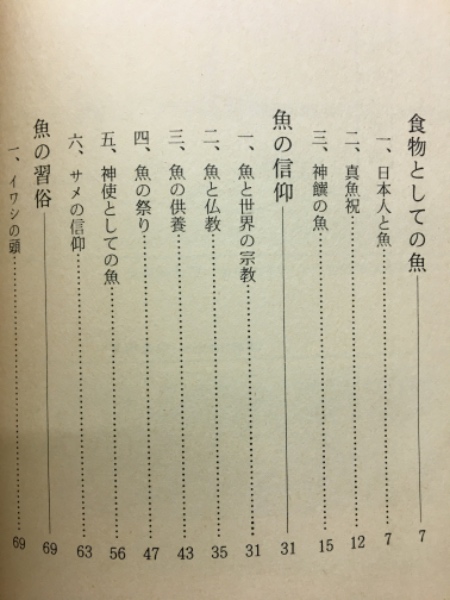 食物としての魚 7
一、日本人と魚 7
二、真魚祝 12
三、神饌の魚 15
魚の信仰 31
一、魚と世界の宗教 31
二、魚と仏教 35
三、魚の供養 43
四、魚の祭り 47
五、神使としての魚 56
六、サメの信仰 63
魚の習俗 69
一、イワシの頭 69